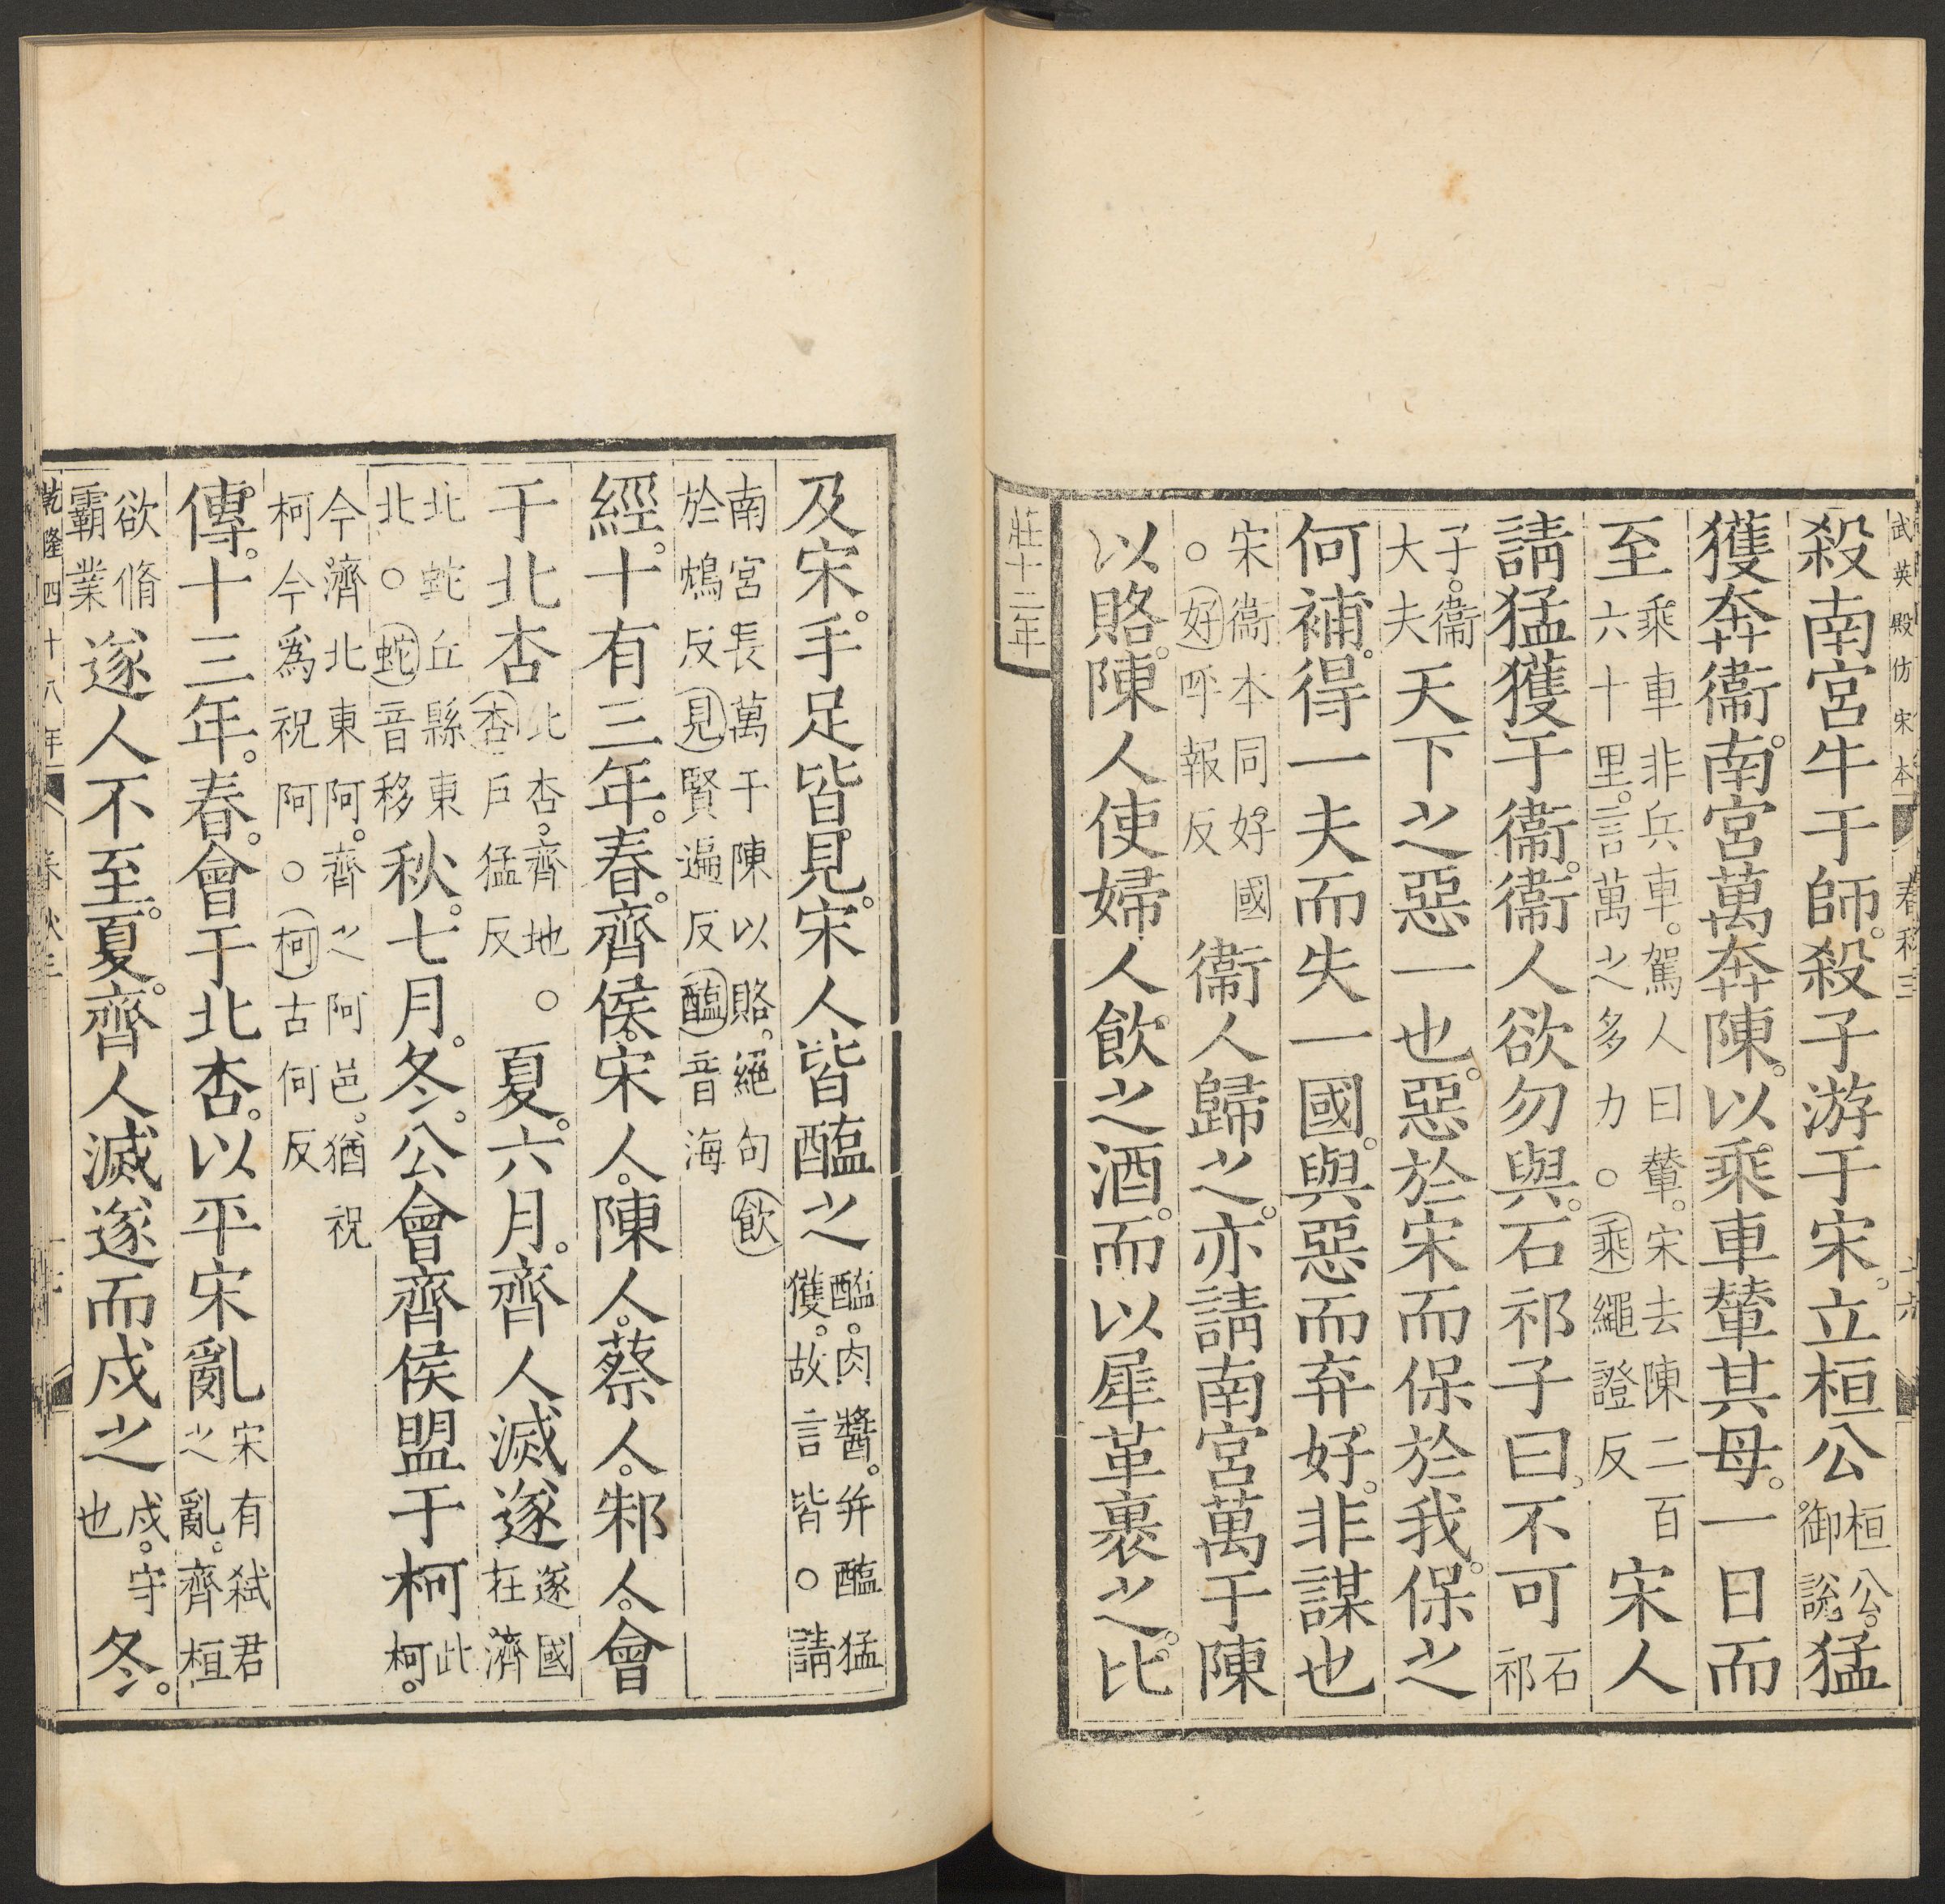 武英殿仿宋本 春秋三 十六
殺南宮牛于師。殺子游于宋。立桓公桓公。御說。猛
獲奔衞。南宮萬奔陳。以乘車輦其母。一日而
至乘車非兵車。駕人曰輦。宋去陳二百六十里。言萬之多力○乘繩證反宋人
請猛獲于衞。衞人欲勿與。石祁子曰。不可石祁
子。衞大夫天下之惡一也。惡於宋而保於我。保之
何補。得一夫而失一國。與惡而弃好。非謀也
宋衞本同好國○好呼報反衞人歸之。亦請南宮萬于陳
以賂。陳人使婦人飲之酒。而以犀革裹之。比
莊十二年
及宋。手足皆見。宋人皆醢之醢。肉醬。并醢猛獲。故言皆○請
南宮長萬于陳以賂。絕句飲於鴆反見賢遍反醢音海
經。十有三年。春。齊侯。宋人。陳人。蔡人。邾人。會
于北杏北杏。齊地○杏戶猛反夏。六月。齊人滅遂遂國在濟
北蛇丘縣東北○蛇音移秋。七月。冬。公會齊侯盟于柯此柯。
今濟北東阿。齊之阿邑。猶祝柯今爲祝阿○柯古何反
傳。十三年。春。會于北杏。以平宋亂宋有弑君之亂。齊桓
欲脩霸業遂人不至。夏。齊人滅遂而戍之戍。守也冬。
乾隆四十八年 春秋三